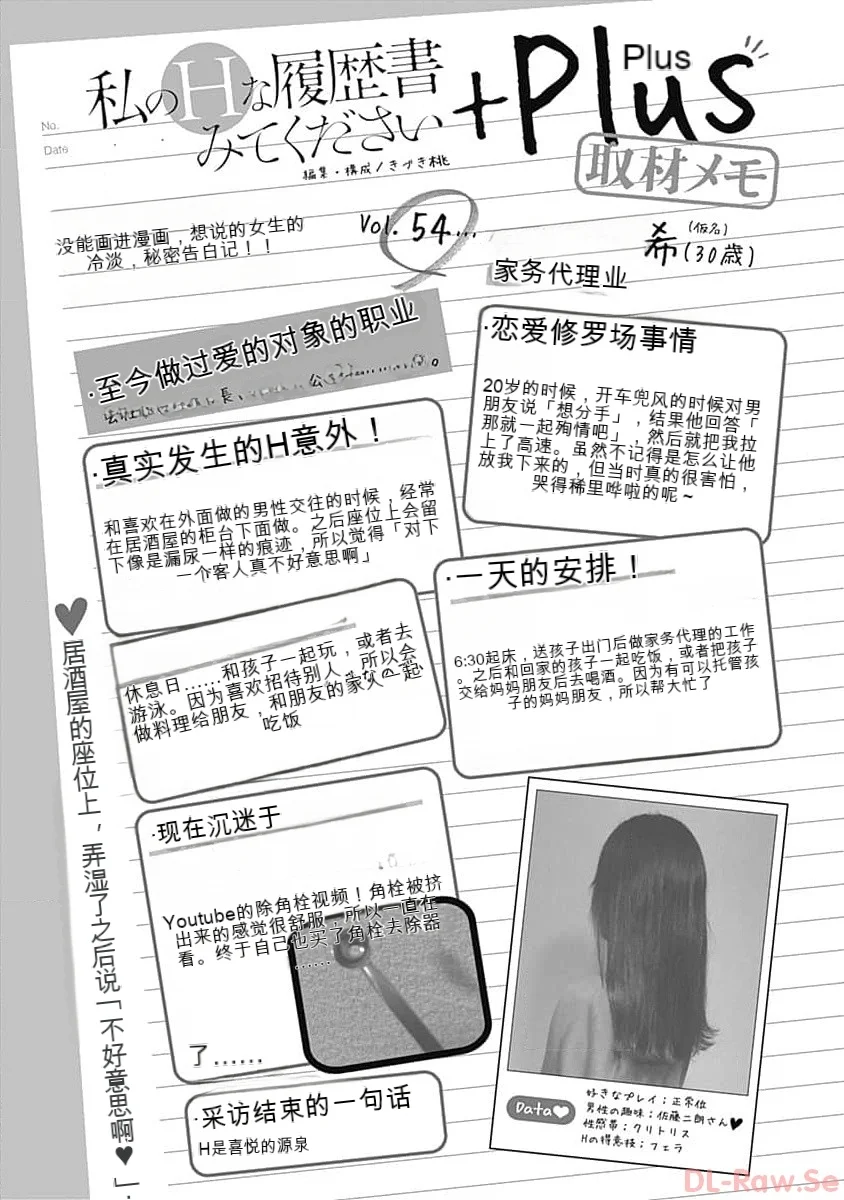 No.
Date
私のHな履歴書
みてください
+Plus
Plus
編集・構成/きづき桃
取材メモ
没能画进漫画，想说的女生的
冷淡，秘密告白记！！
Vol. 54...
(仮名)
希(30歳)
家务代理业
·至今做过爱的对象的职业
·恋爱修罗场事情
20岁的时候，开车兜风的时候对男
朋友说「想分手」，结果他回答「
那就一起殉情吧」，然后就把我拉
上了高速。虽然不记得是怎么让他
放我下来的，但当时真的很害怕，
哭得稀里哗啦的呢～
·真实发生的H意外！
和喜欢在外面做的男性交往的时候，经常
在居酒屋的柜台下面做。之后座位上会留
下像是漏尿一样的痕迹，所以觉得「对下
一个客人真不好意思啊」
·一天的安排！
6:30起床，送孩子出门后做家务代理的工作
。之后和回家的孩子一起吃饭，或者把孩子
交给妈妈朋友后去喝酒。因为有可以托管孩
子的妈妈朋友，所以帮大忙了
休息日……和孩子一起玩，或者去
游泳。因为喜欢招待别人，所以会
做料理给朋友，和朋友的家人一起
吃饭
♥居酒屋的座位上，弄湿了之后说「不好意思啊♥」
·现在沉迷于
Youtube的除角栓视频！角栓被挤
出来的感觉很舒服，所以一直在
看。终于自己也买了角栓去除器
……
了……
·采访结束的一句话
H是喜悦的源泉
Data♥
好きなプレイ；正常位
男性の趣味；佐藤二朗さん♥
性感帯；クリトリス
Hの得意技；フェラ
DL-Raw.Se